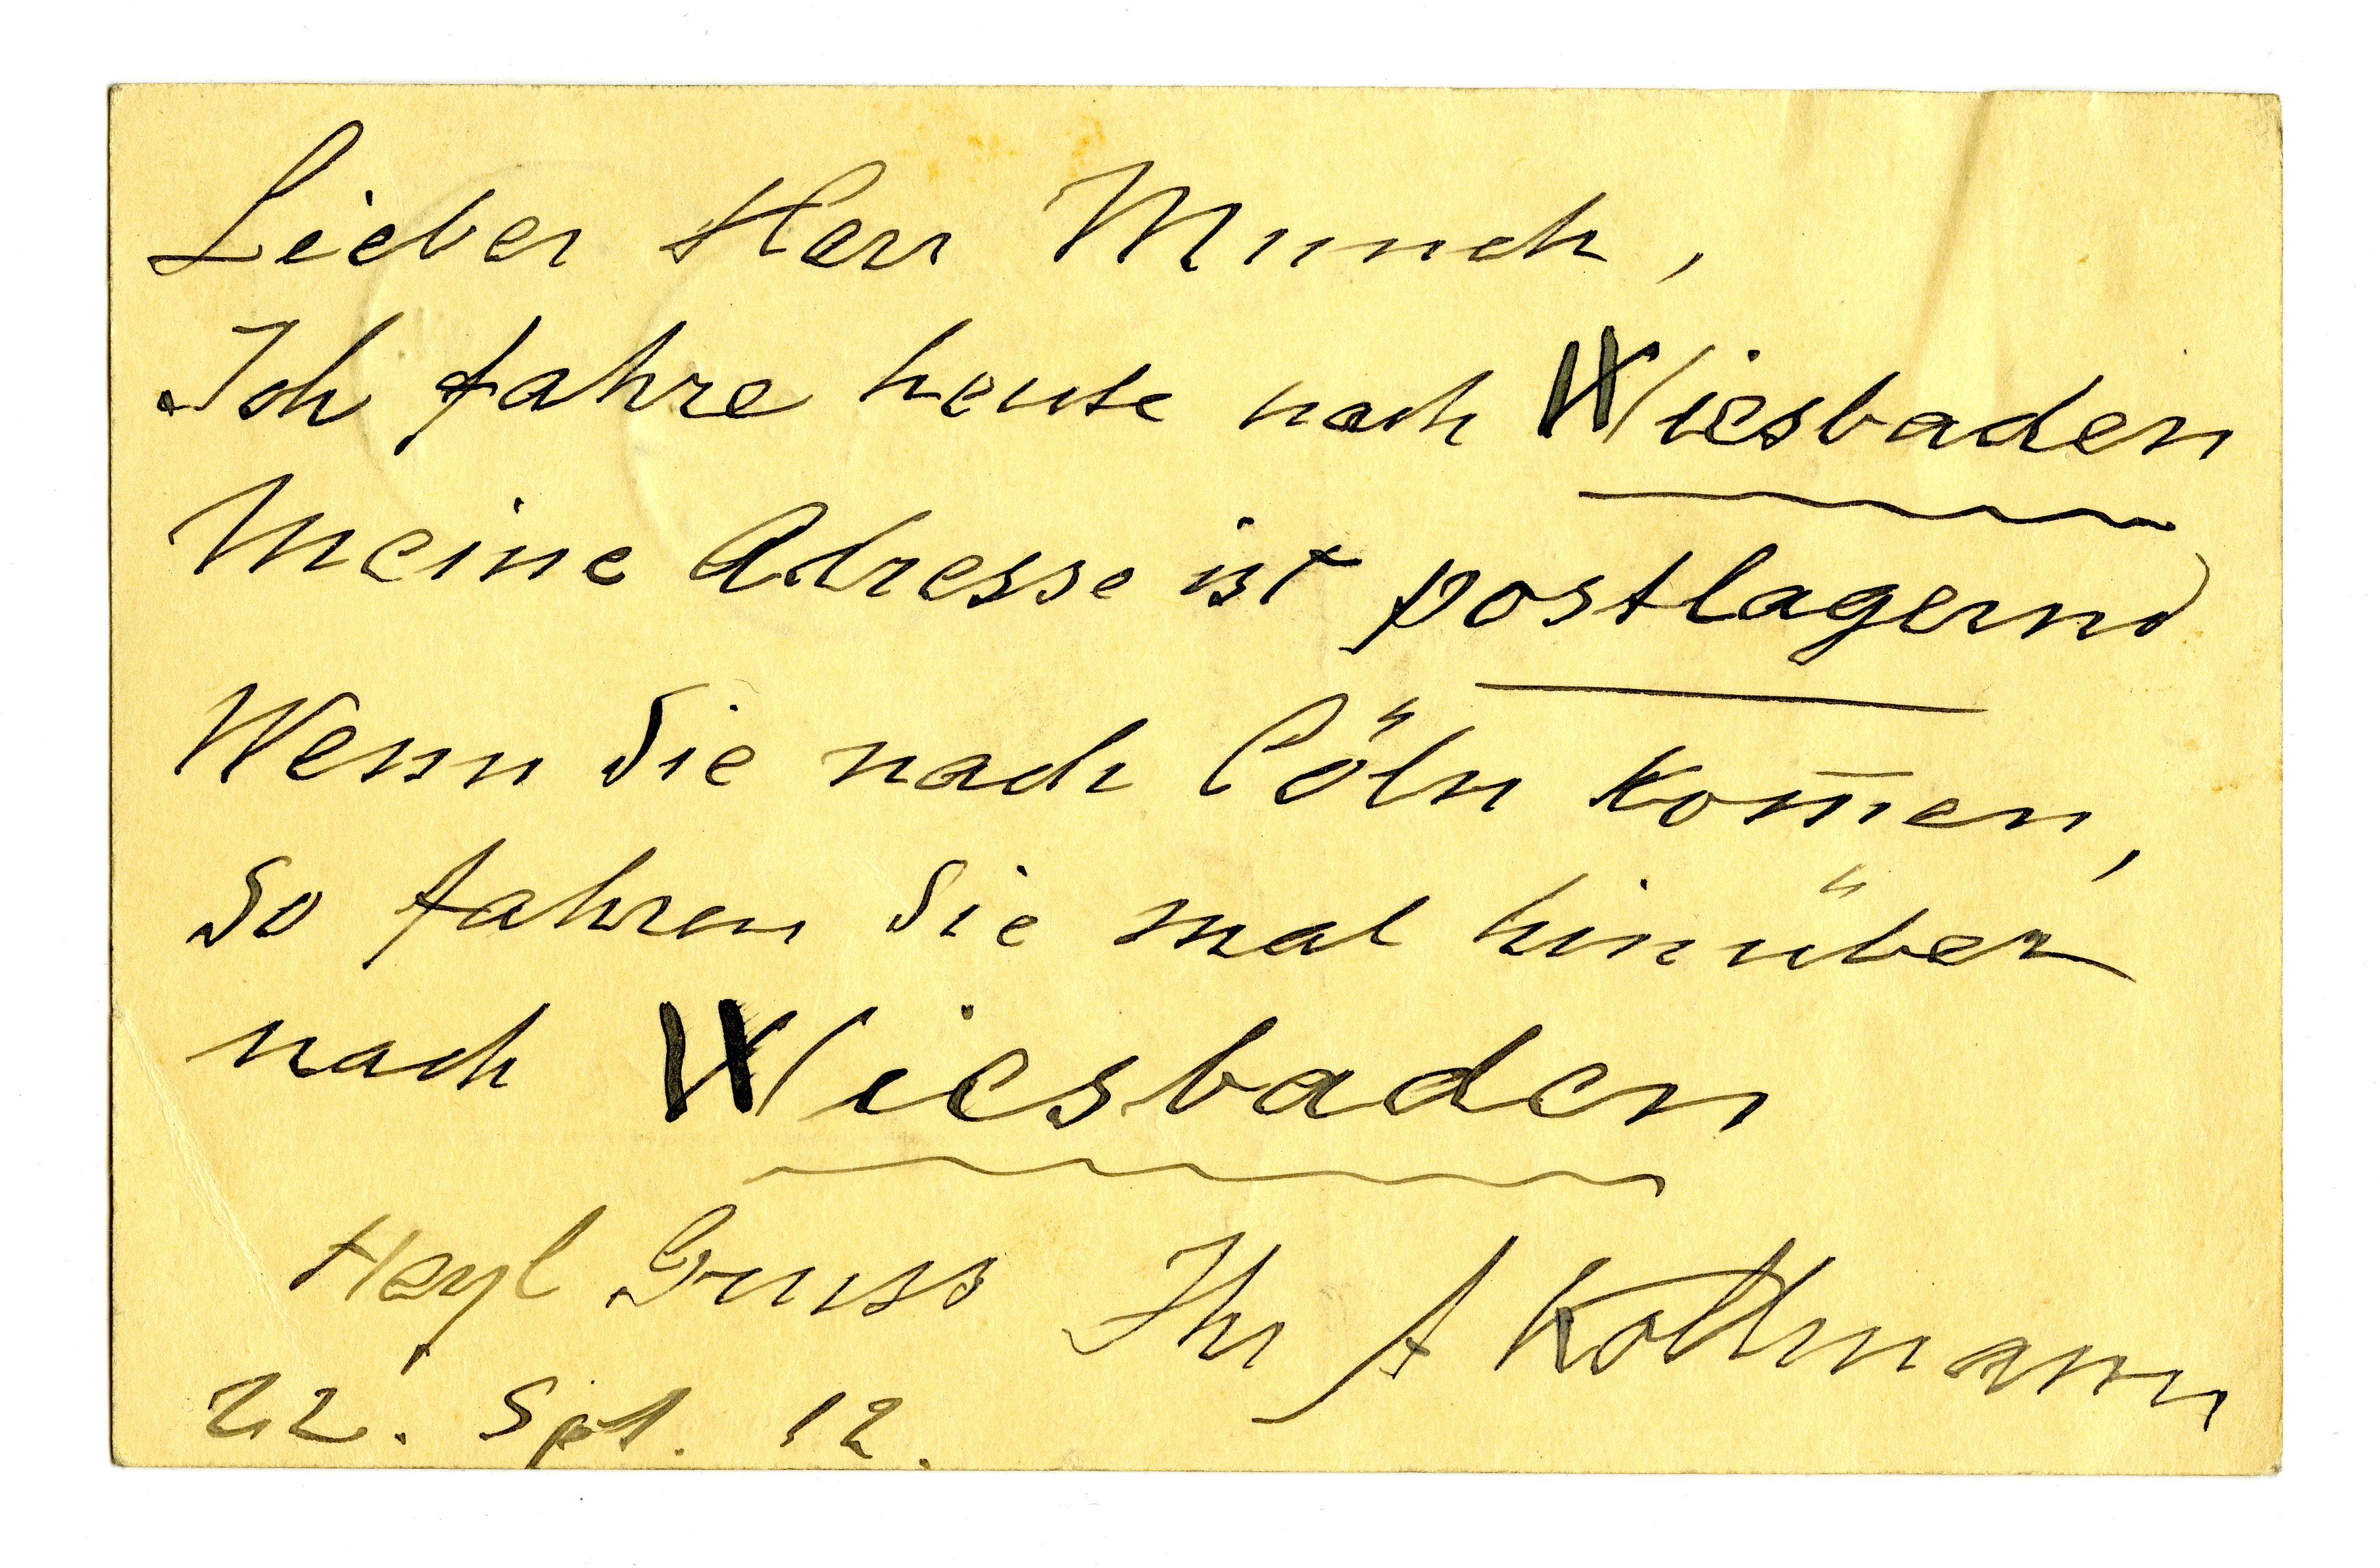 Lieber Herr Munch,
Ich fahre heute nach Wiesbaden
Meine Adresse ist postlagernd
Wenn Sie nach Cöln kom̅en,
So fahren Sie mal hinüber
nach Wiesbaden
Heyl Gruss Ihr A Kollmann
22. Spt. 12.